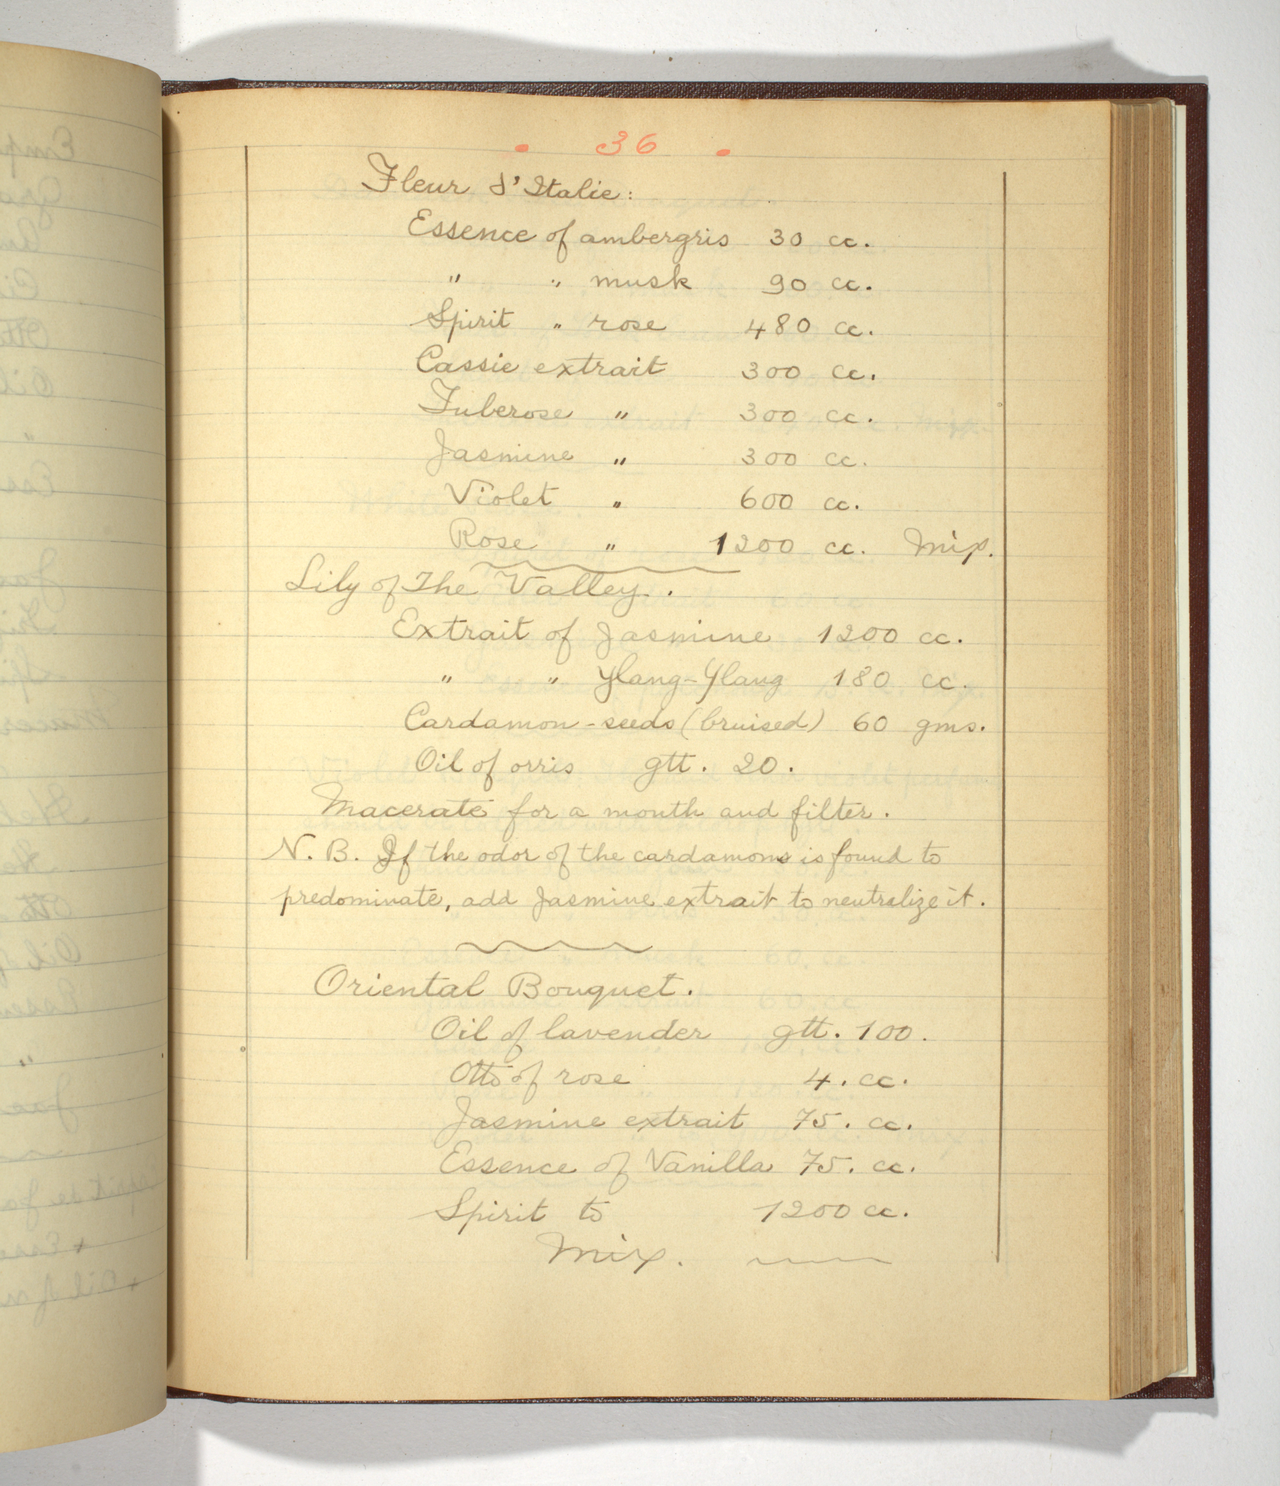 . 36 .
Fleur d'Italie:
Essence of ambergris 30 cc.
" " musk 90 cc.
Spirit " rose 480 cc.
Cassie extrait 300 cc.
Tuberose " 300 cc.
Jasmine " 300 cc.
Violet " 600 cc.
Rose " 1200 cc. Mix.
Lily of The Valley.
Extrait of Jasmine 1200 cc.
" " Ylang-Ylang 180 cc.
Cardamon-seeds (bruised) 60 gms.
Oil of orris gtt. 20.
Macerate for a month and filter.
N.B. If the odor of the cardamons is found to
predominate, add Jasmine extrait to neutralize it.
Oriental Bouquet.
Oil of lavender gtt. 100.
Otto of rose 4. cc.
Jasmine extrait 75. cc.
Essence of Vanilla 75. cc.
Spirit to 1200 cc.
Mix.